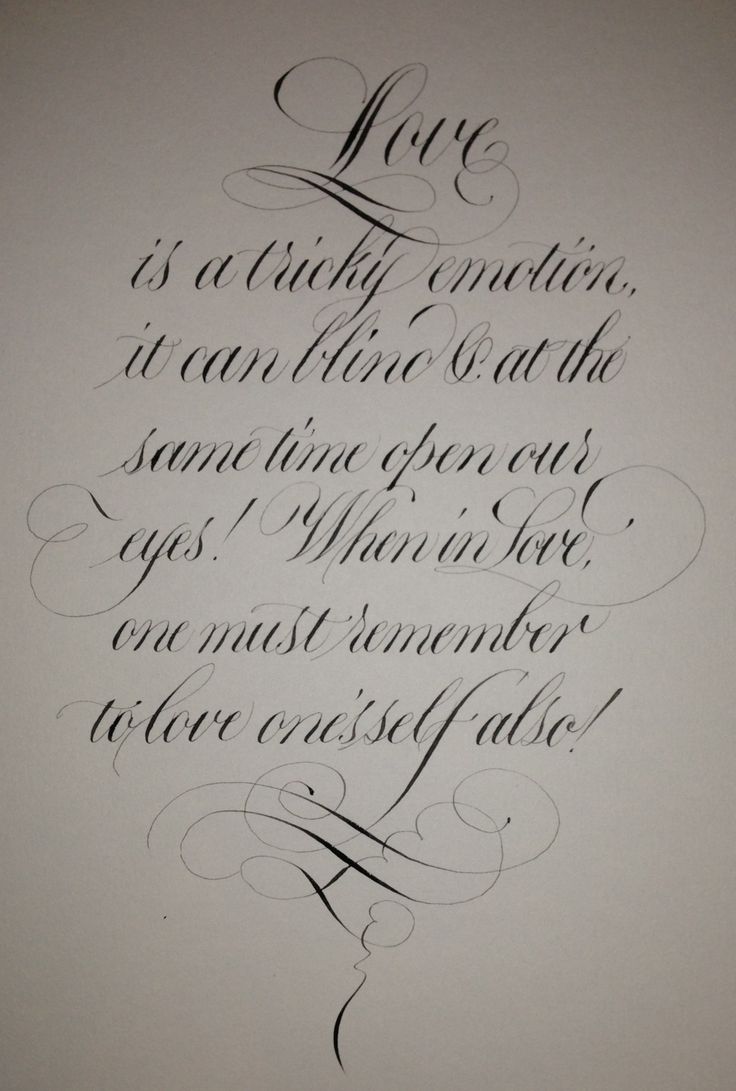 Love
is a tricky emotion,
it can blind & at the
same time open our
eyes! When in Love,
one must remember
to love one'sself also!